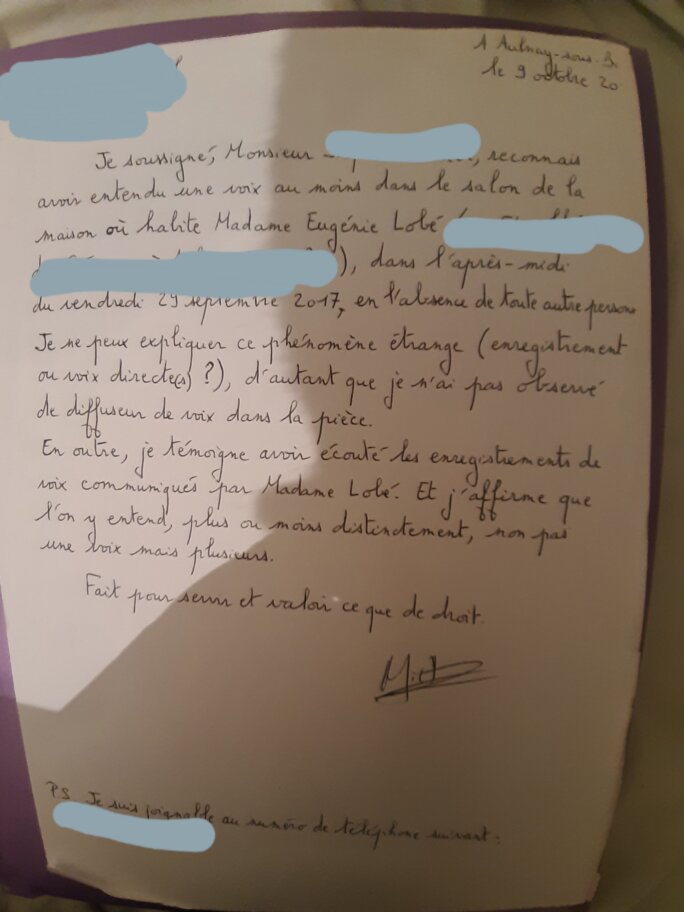 A Aulnay-sous-B.
le 9 octobre 20
Je soussigné, Monsieur , reconnais
avoir entendu une voix au moins dans le salon de la
maison où habite Madame Eugénie Lobé
), dans l'après-midi
du vendredi 29 septembre 2017, en l'absence de toute autre person
Je ne peux expliquer ce phénomène étrange (enregistrement
ou voix directe(s) ?), d'autant que je n'ai pas observé
de diffuseur de voix dans la pièce.
En outre, je témoigne avoir écouté les enregistrements de
voix communiqués par Madame Lobé. Et j'affirme que
l'on y entend, plus ou moins distinctement, non pas
une voix mais plusieurs.
Fait pour servir et valoir ce que de droit.
PS Je suis joignable au numéro de téléphone suivant :